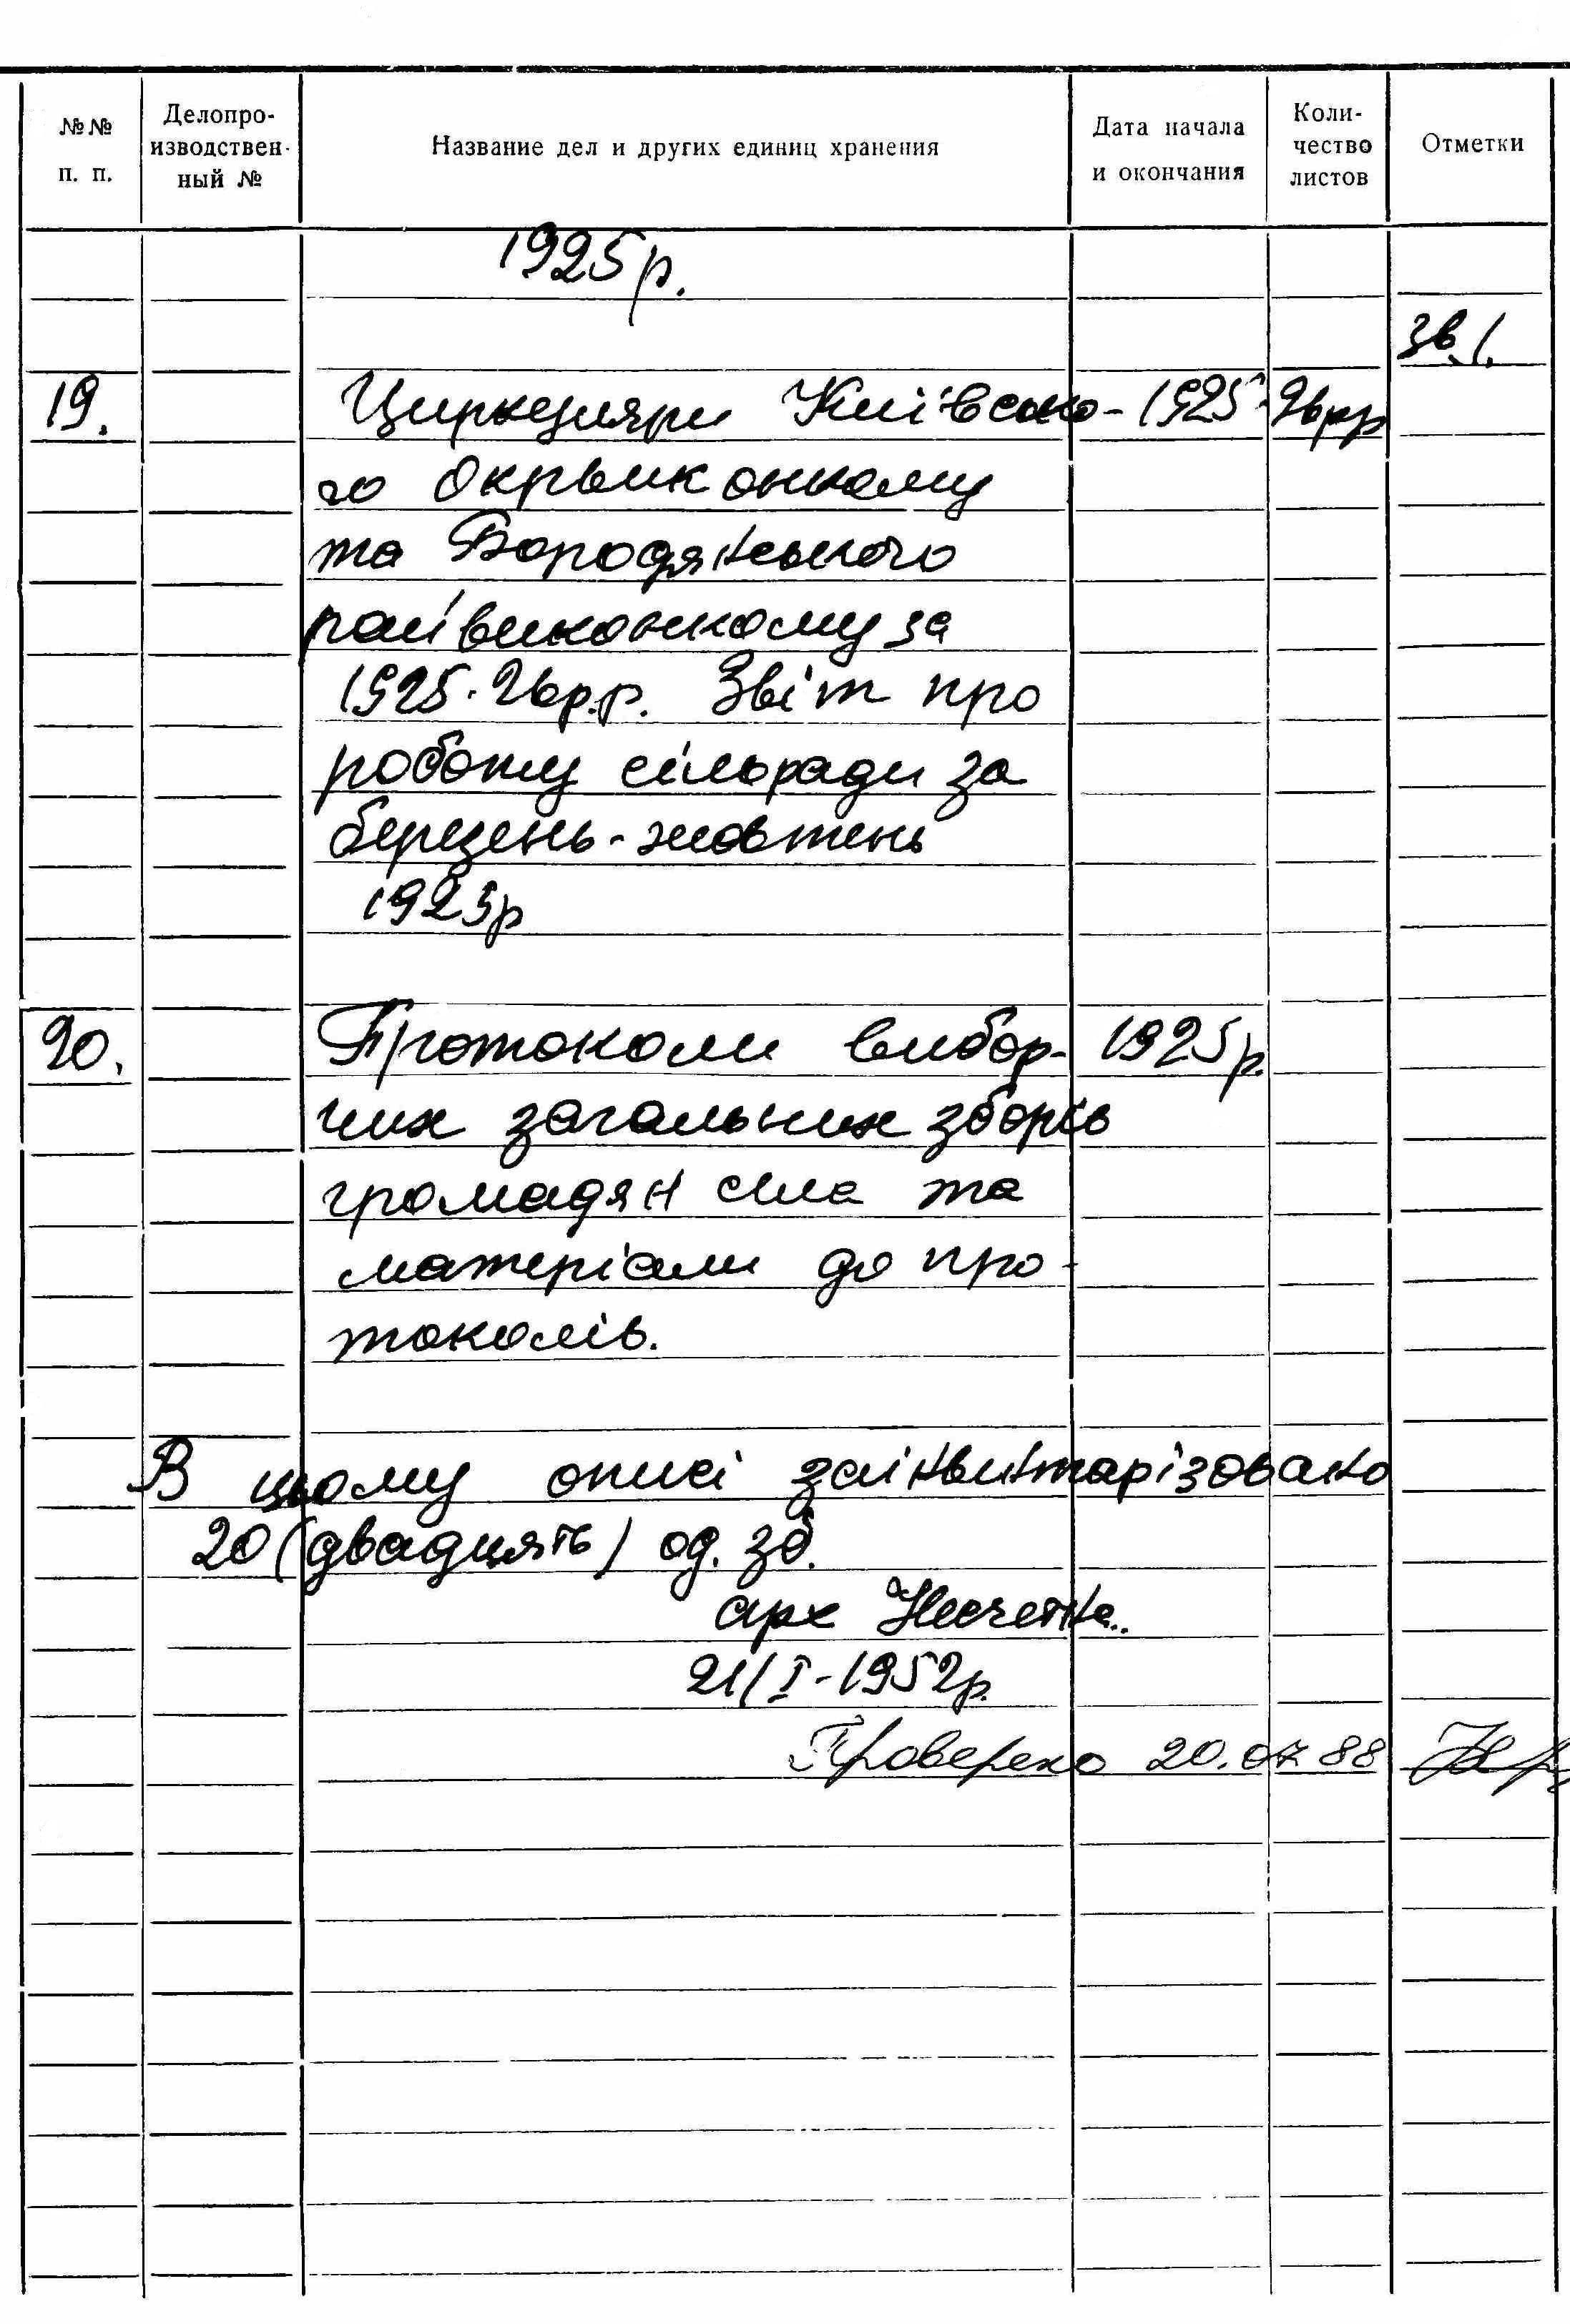 №№ п. п.
Делопро-
изводствен-
ный №
Название дел и других единиц хранения
Дата начала
и окончания
Коли-
чество
листов
Отметки
1925 р.
зв. 1.
19. Циркуляри Київсько- 1925-26рр
го Окрвиконкому
та Бородянського
райвиконкому за
1925-26р.р. Звіт про
роботу сільради за
березень-жовтень
1925р
20. Протоколи вибор- 1925р.
чих загальних зборів
громадян села та
матеріали до про-
токолів.
В цьому описі заінвентарізовано
20 (двадцять) од. зб.
арх
21/I-1952р.
Проверено 20.07.88